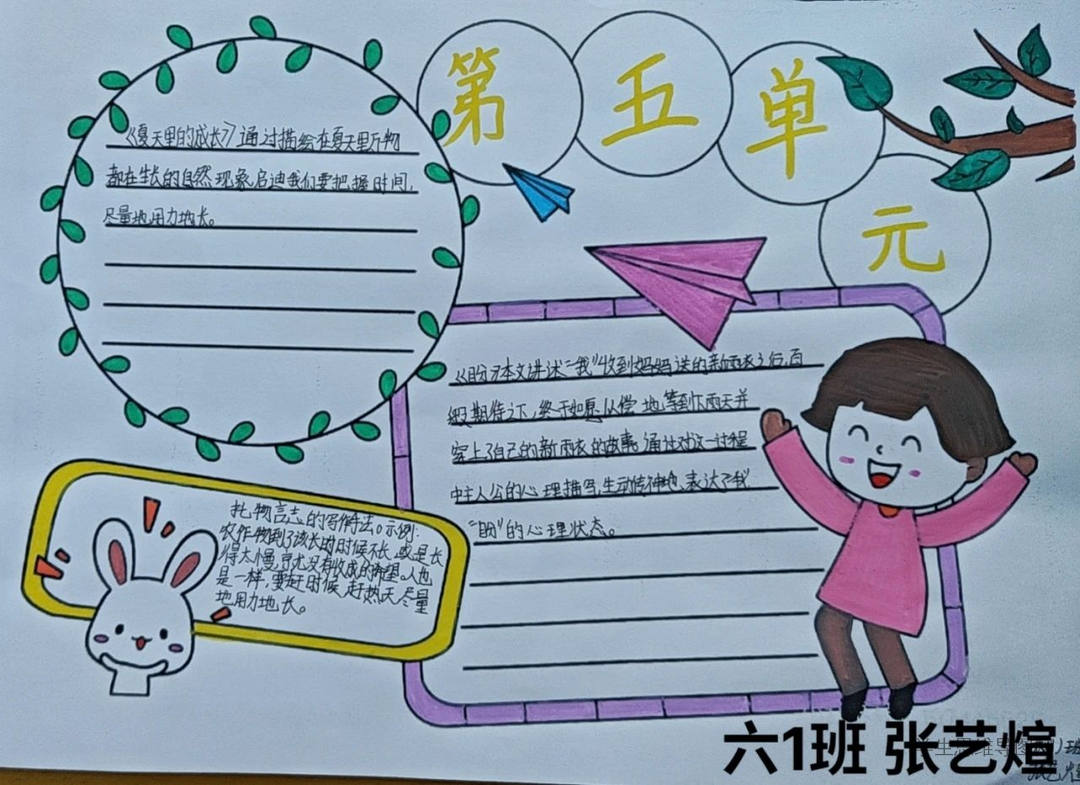 第五单元
《夏天里的成长》通过描绘在夏天里万物
都在生长的自然现象启迪我们要把握时间,
尽量地用力地长。
《盼》本文讲述“我”收到妈妈送的新雨衣之后,百
般期待之下,终于如愿以偿地等到下雨天并
穿上了自己的新雨衣的故事。通过对这一过程
中主人公的心理描写,生动传神地表达了我
“盼”的心理状态。
托物言志的写作手法。示例:
农作物到了该长的时候不长,或是长
得太慢,就没有收成的希望。人也
是一样,要赶时候,赶热天,尽量
地用力地长。
六1班 张艺煊